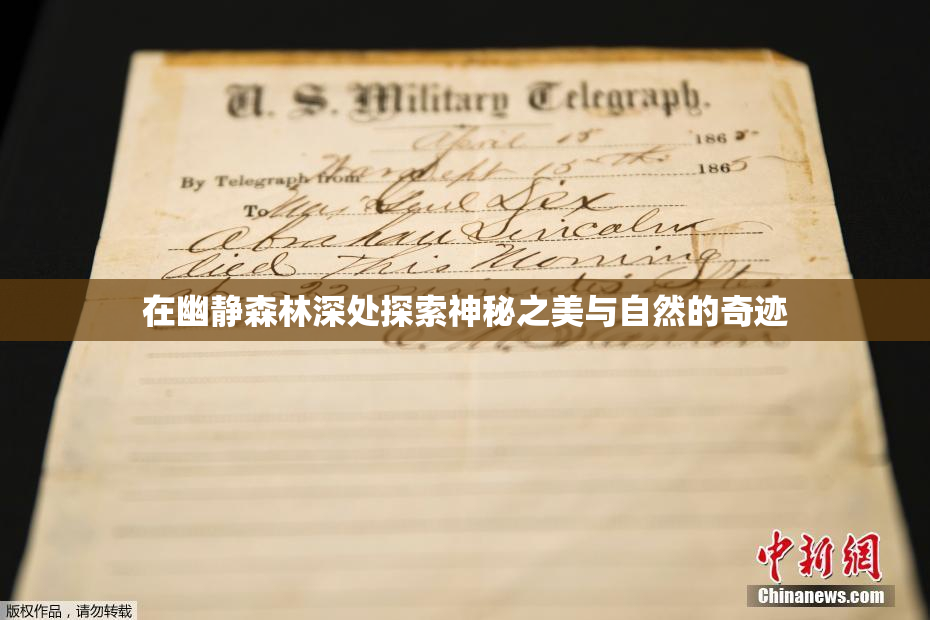 U. S. Military Telegraph.
April 15 1865
By Telegraph from War Dept 15th 1865
To Maj Genl Dix
Abraham Lincoln
died This Morning
22 minutes after
在幽静森林深处探索神秘之美与自然的奇迹
E. M. Stanton
中新網
Chinanews.com
版权作品，请勿转载